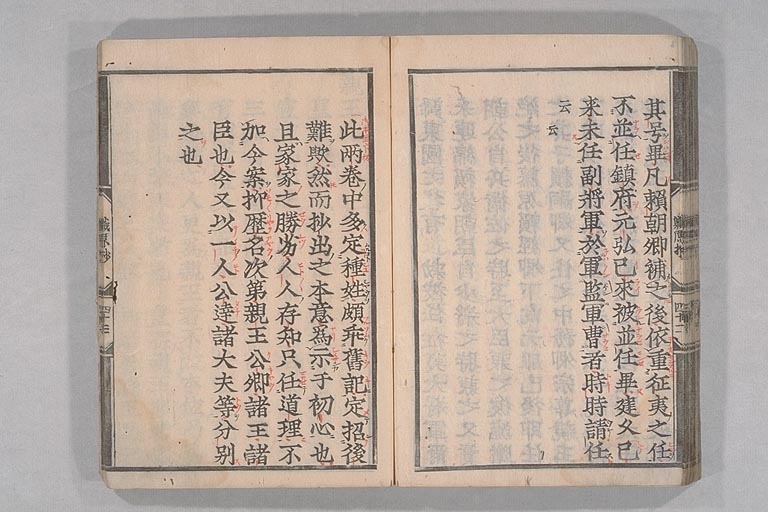 其号畢凡頼朝卿補之後依重征夷之任
不並任鎮府元弘已來被並任畢建久已
来未任副將軍於軍監軍曹者時時請任
云云
此兩巻中多定種姓頗乖舊記定招後
難歟然而抄出之本意爲示于初心也
且家家之勝劣人人存知只任道理不
加今案抑歴名次第親王公卿諸王諸
臣也今又以一人公達諸大夫等分別
之也